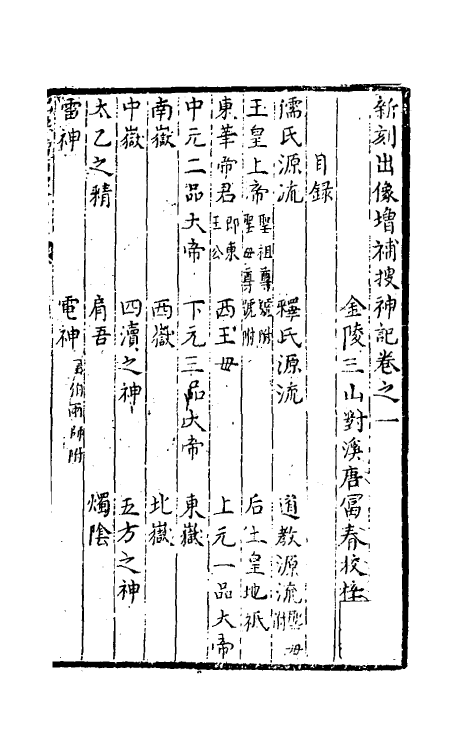 新刻出像增補搜神記卷之一
金陵三山對溪唐富春校梓
目錄
儒氏源流 釋氏源流 道教源流 聖母附
玉皇上帝 聖祖尊號附 聖母尊號附 后土皇地祇
東華帝君 即東王公 西王母 上元一品大帝
中元二品大帝 下元三品大帝 東嶽
南嶽 西嶽 北嶽
中嶽 四瀆之神 五方之神
太乙之精 肩吾 燭陰
雷神 電神 風伯雨師附